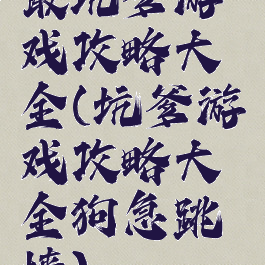 最坑爹游
戏攻略大
全(坑爹游
戏攻略大
全狗急跳
墙)